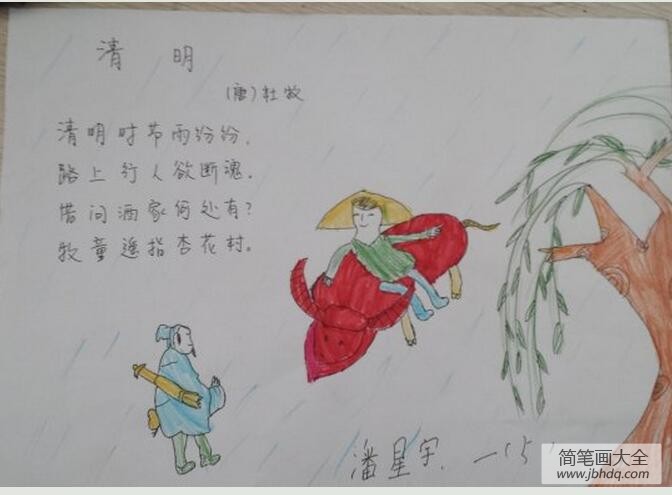 清明
(唐)杜牧
清明时节雨纷纷,
路上行人欲断魂.
借问酒家何处有?
牧童遥指杏花村.
潘星宇. 一(5)
简笔画大全
www.jbhdq.com